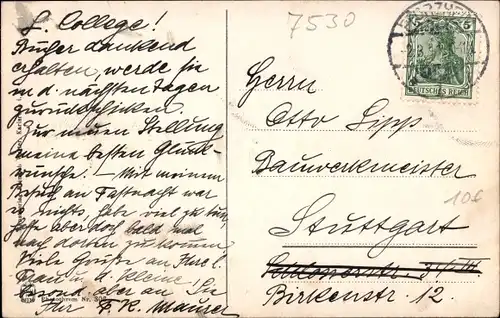 L. College!
7530
Bücher dankend
erhalten, werde sie
in d. nächsten Tagen
zurückschicken.
Zur neuen Stellung
meine besten Glück-
wünsche! - Mit meinem
Besuch an Fastnacht war
es nichts, habe viel zu tun,
hoffe aber doch bald mal
nach dorten zu kommen
Viele Grüße an Ihre l.
Frau u. d. Kleine
besond. aber an Sie
Ihr F. K. Maurer
5 5
DEUTSCHES REICH
Herrn
Otto Lipp
Bauwerkmeister
10€
Stuttgart
Birkenstr. 12.